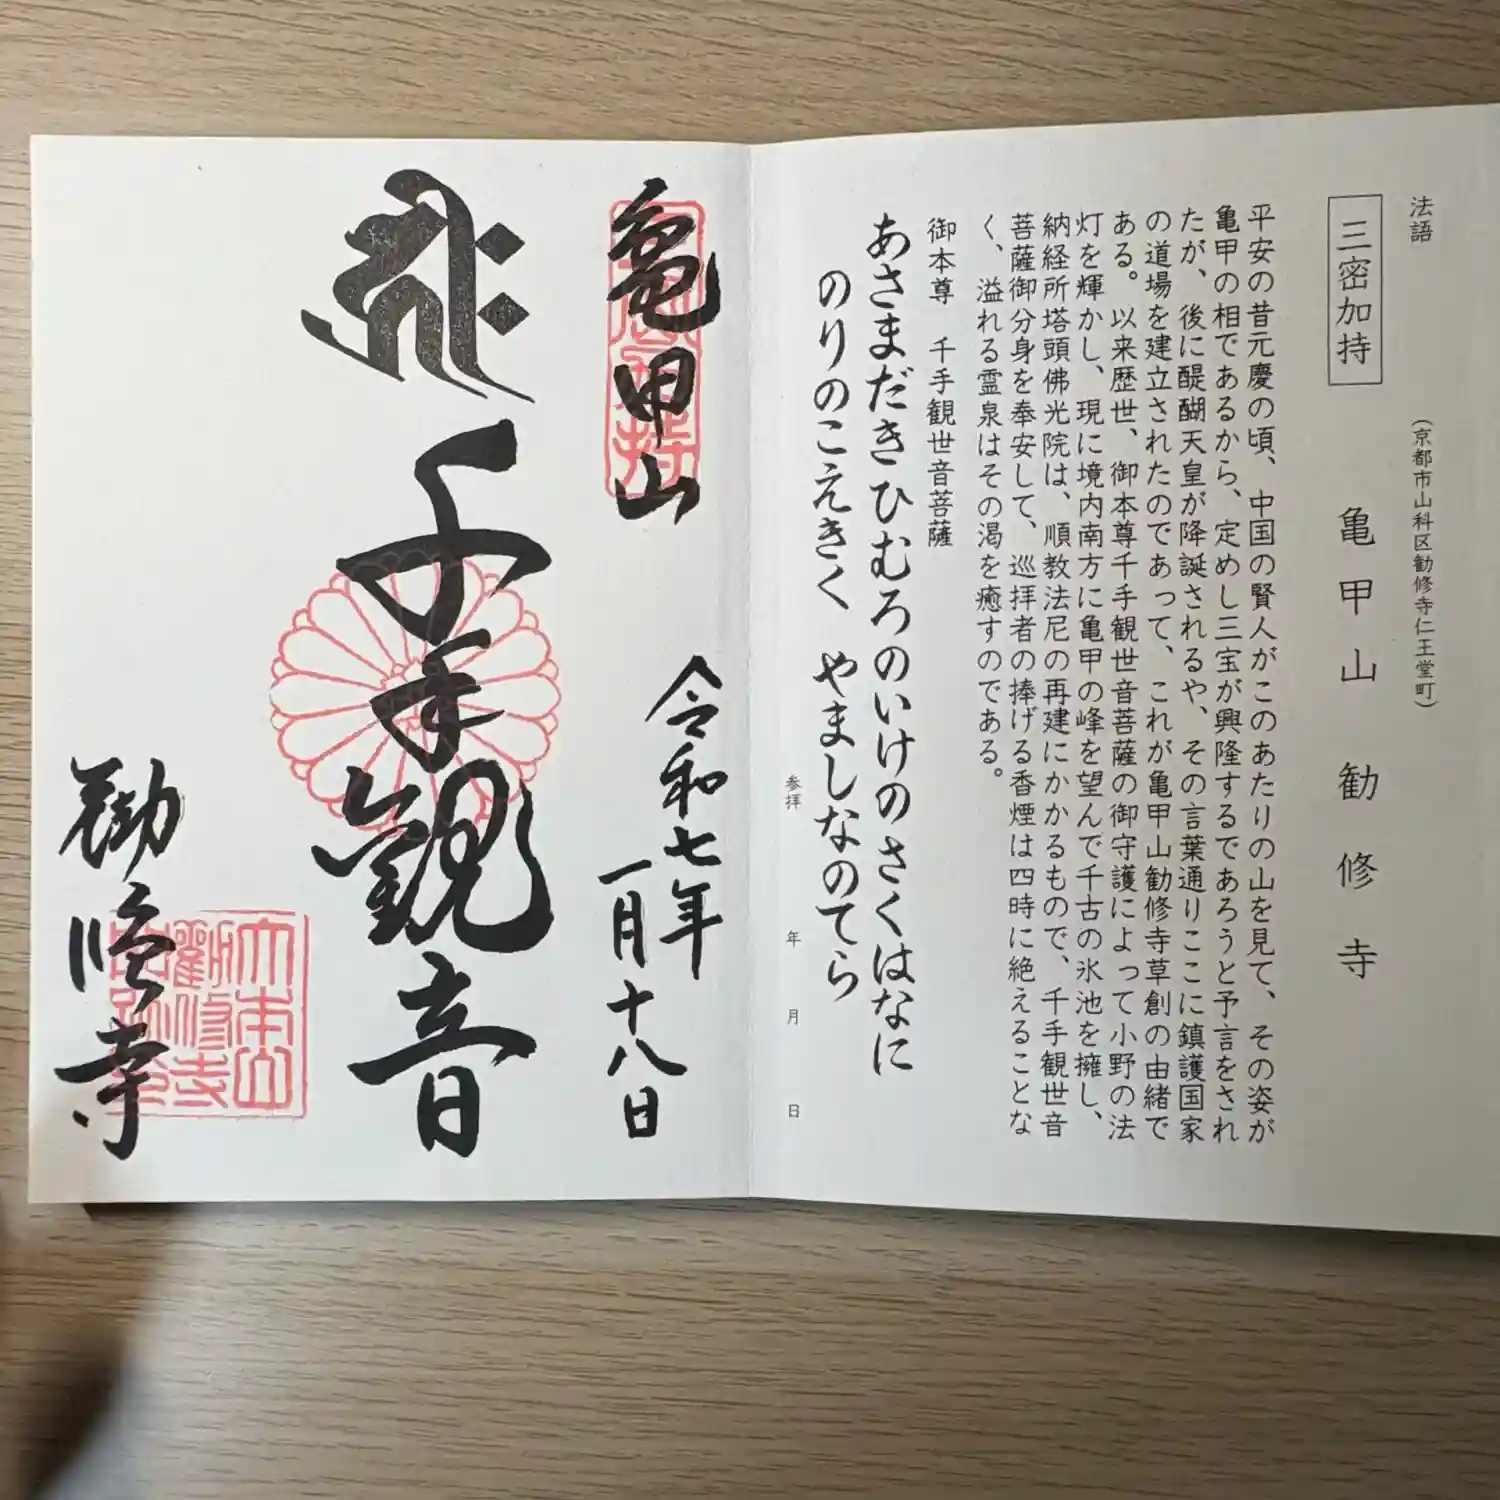 法語
(京都市山科区勧修寺仁王堂町)
三密加持
亀甲山 勧修寺
平安の昔元慶の頃、中国の賢人がこのあたりの山を見て、その姿が
亀甲の相であるから、定めし三宝が興隆するであろうと予言をされ
たが、後に醍醐天皇が降誕されるや、その言葉通りここに鎮護国家
の道場を建立されたのであって、これが亀甲山勧修寺草創の由緒で
ある。以来歴世、御本尊千手観世音菩薩の御守護によって小野の法
灯を輝かし、現に境内南方に亀甲の峰を望んで千古の氷池を擁し、
納経所塔頭佛光院は、順教法尼の再建にかかるもので、千手観世音
菩薩御分身を奉安して、巡拝者の捧げる香煙は四時に絶えることな
く、溢れる霊泉はその渇を癒すのである。
御本尊 千手観世音菩薩
あさまだきひむろのいけのさくはなに
のりのこえきく やましなのてら
参拝 年 月 日
亀甲山
三密加持
令和七年
一月十八日
千手観音
勧修寺
大本山
勧修寺